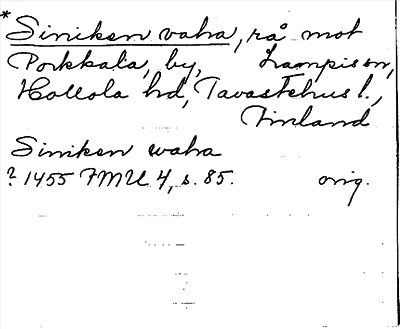 *Siniken vaha, rå mot
Porkkala, by, Lampis sn,
Hollola hd, Tavastehus l.,
Finland
Siniken waha
? 1455 FMU 4, s. 85. orig.